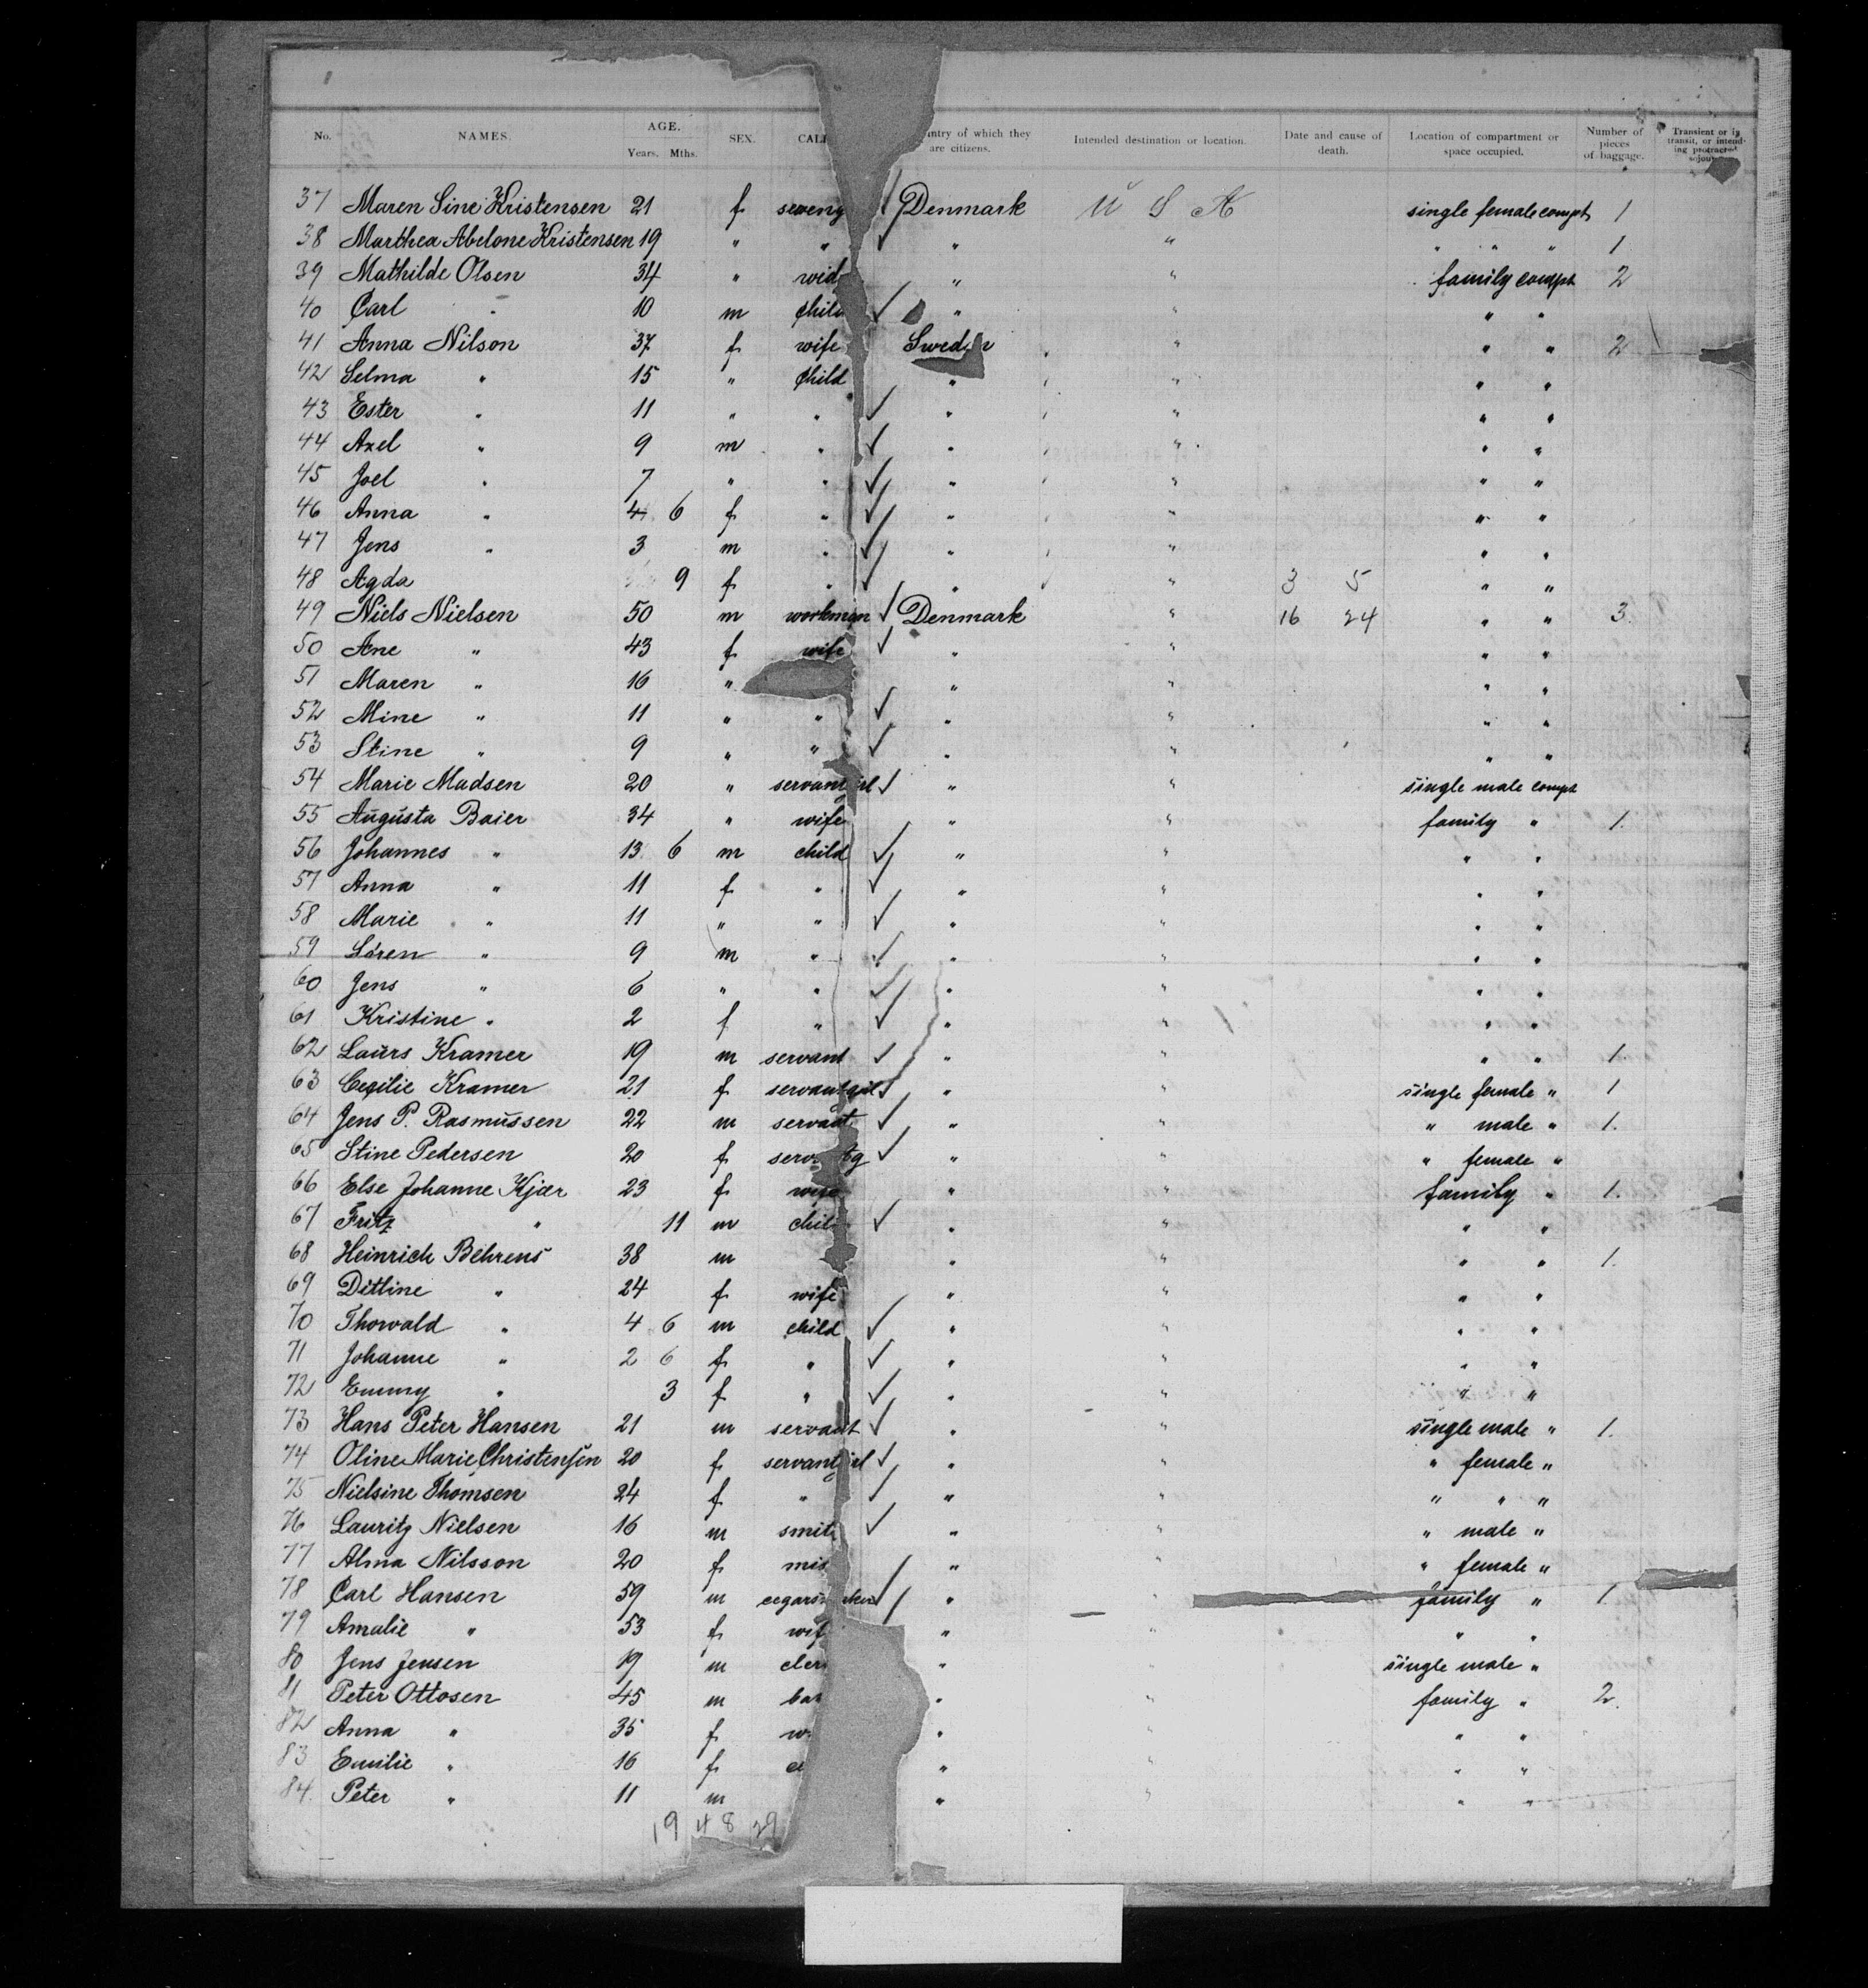 No. NAMES. AGE. Years. Mths. SEX. CALL ntry of which they are citizens. Intended destination or location. Date and cause of death. Location of compartment or space occupied. Number of pieces of baggage. Transient or in transit, or intending protracted sojou
37 Maren Sine Kristensen 21 f Denmark U S A single female compt 1
38 Marthea Abelone Kristensen 19 " " " " " " " 1
39 Mathilde Olsen 34 " wid " " family compt 2
40 Carl " 10 m chil " " " "
41 Anna Nilson 37 f wife Sweden " " " 2
42 Selma " 15 " child " " " "
43 Ester " 11 " " " " " "
44 Axel " 9 m " " " " "
45 Joel " 7 " " " " " "
46 Anna " 4 6 f " " " " "
47 Jens " 3 m " " " " "
48 Agda 9 f " " " 3 5 " "
49 Niels Nielsen 50 m workman Denmark " 16 24 " " 3.
50 Ane " 43 f wife " " " "
51 Maren " 16 " " " " "
52 Mine " 11 " " " " " "
53 Stine " 9 " " " " " "
54 Marie Madsen 20 " servant irl " " single male compt
55 Augusta Baier 34 " wife " " family " 1.
56 Johannes " 13 6 m child " " " "
57 Anna " 11 f " " " " "
58 Marie " 11 " " " " " "
59 Sören " 9 m " " " " "
60 Jens " 6 " " " " " "
61 Kristine " 2 f " " " " "
62 Laurs Kramer 19 m servant " " " " 1.
63 Cecilie Kramer 21 f servantgirl " " single female " 1
64 Jens P. Rasmussen 22 m servant " " " male " 1.
65 Stine Pedersen 20 f serv tg " " " female "
66 Else Johanne Kjær 23 f wife " " family " 1.
67 Fritz " 11 m chil " " " "
68 Heinrich Behrens 38 m " " " " 1.
69 Ditline " 24 f wife " " " "
70 Thorvald " 4 6 m child " " " "
71 Johanne " 2 6 f " " " " "
72 Emmy " 3 f " " " " "
73 Hans Peter Hansen 21 m servant " " single male " 1.
74 Oline Marie Christensen 20 f servant irl " " " female "
75 Nielsine Thomsen 24 f " " " " " "
76 Lauritz Nielsen 16 m smit " " " male "
77 Alma Nilsson 20 f mis " " " female "
78 Carl Hansen 59 m " " family " 1
79 Amalie " 53 f wif " " " "
80 Jens Jensen 19 m cler " " single male "
81 Peter Ottosen 45 m bar " " family " 2.
82 Anna " 35 f w " " " "
83 Emilie " 16 f " " " "
84. Peter " 11 m " " " "
19 48 29